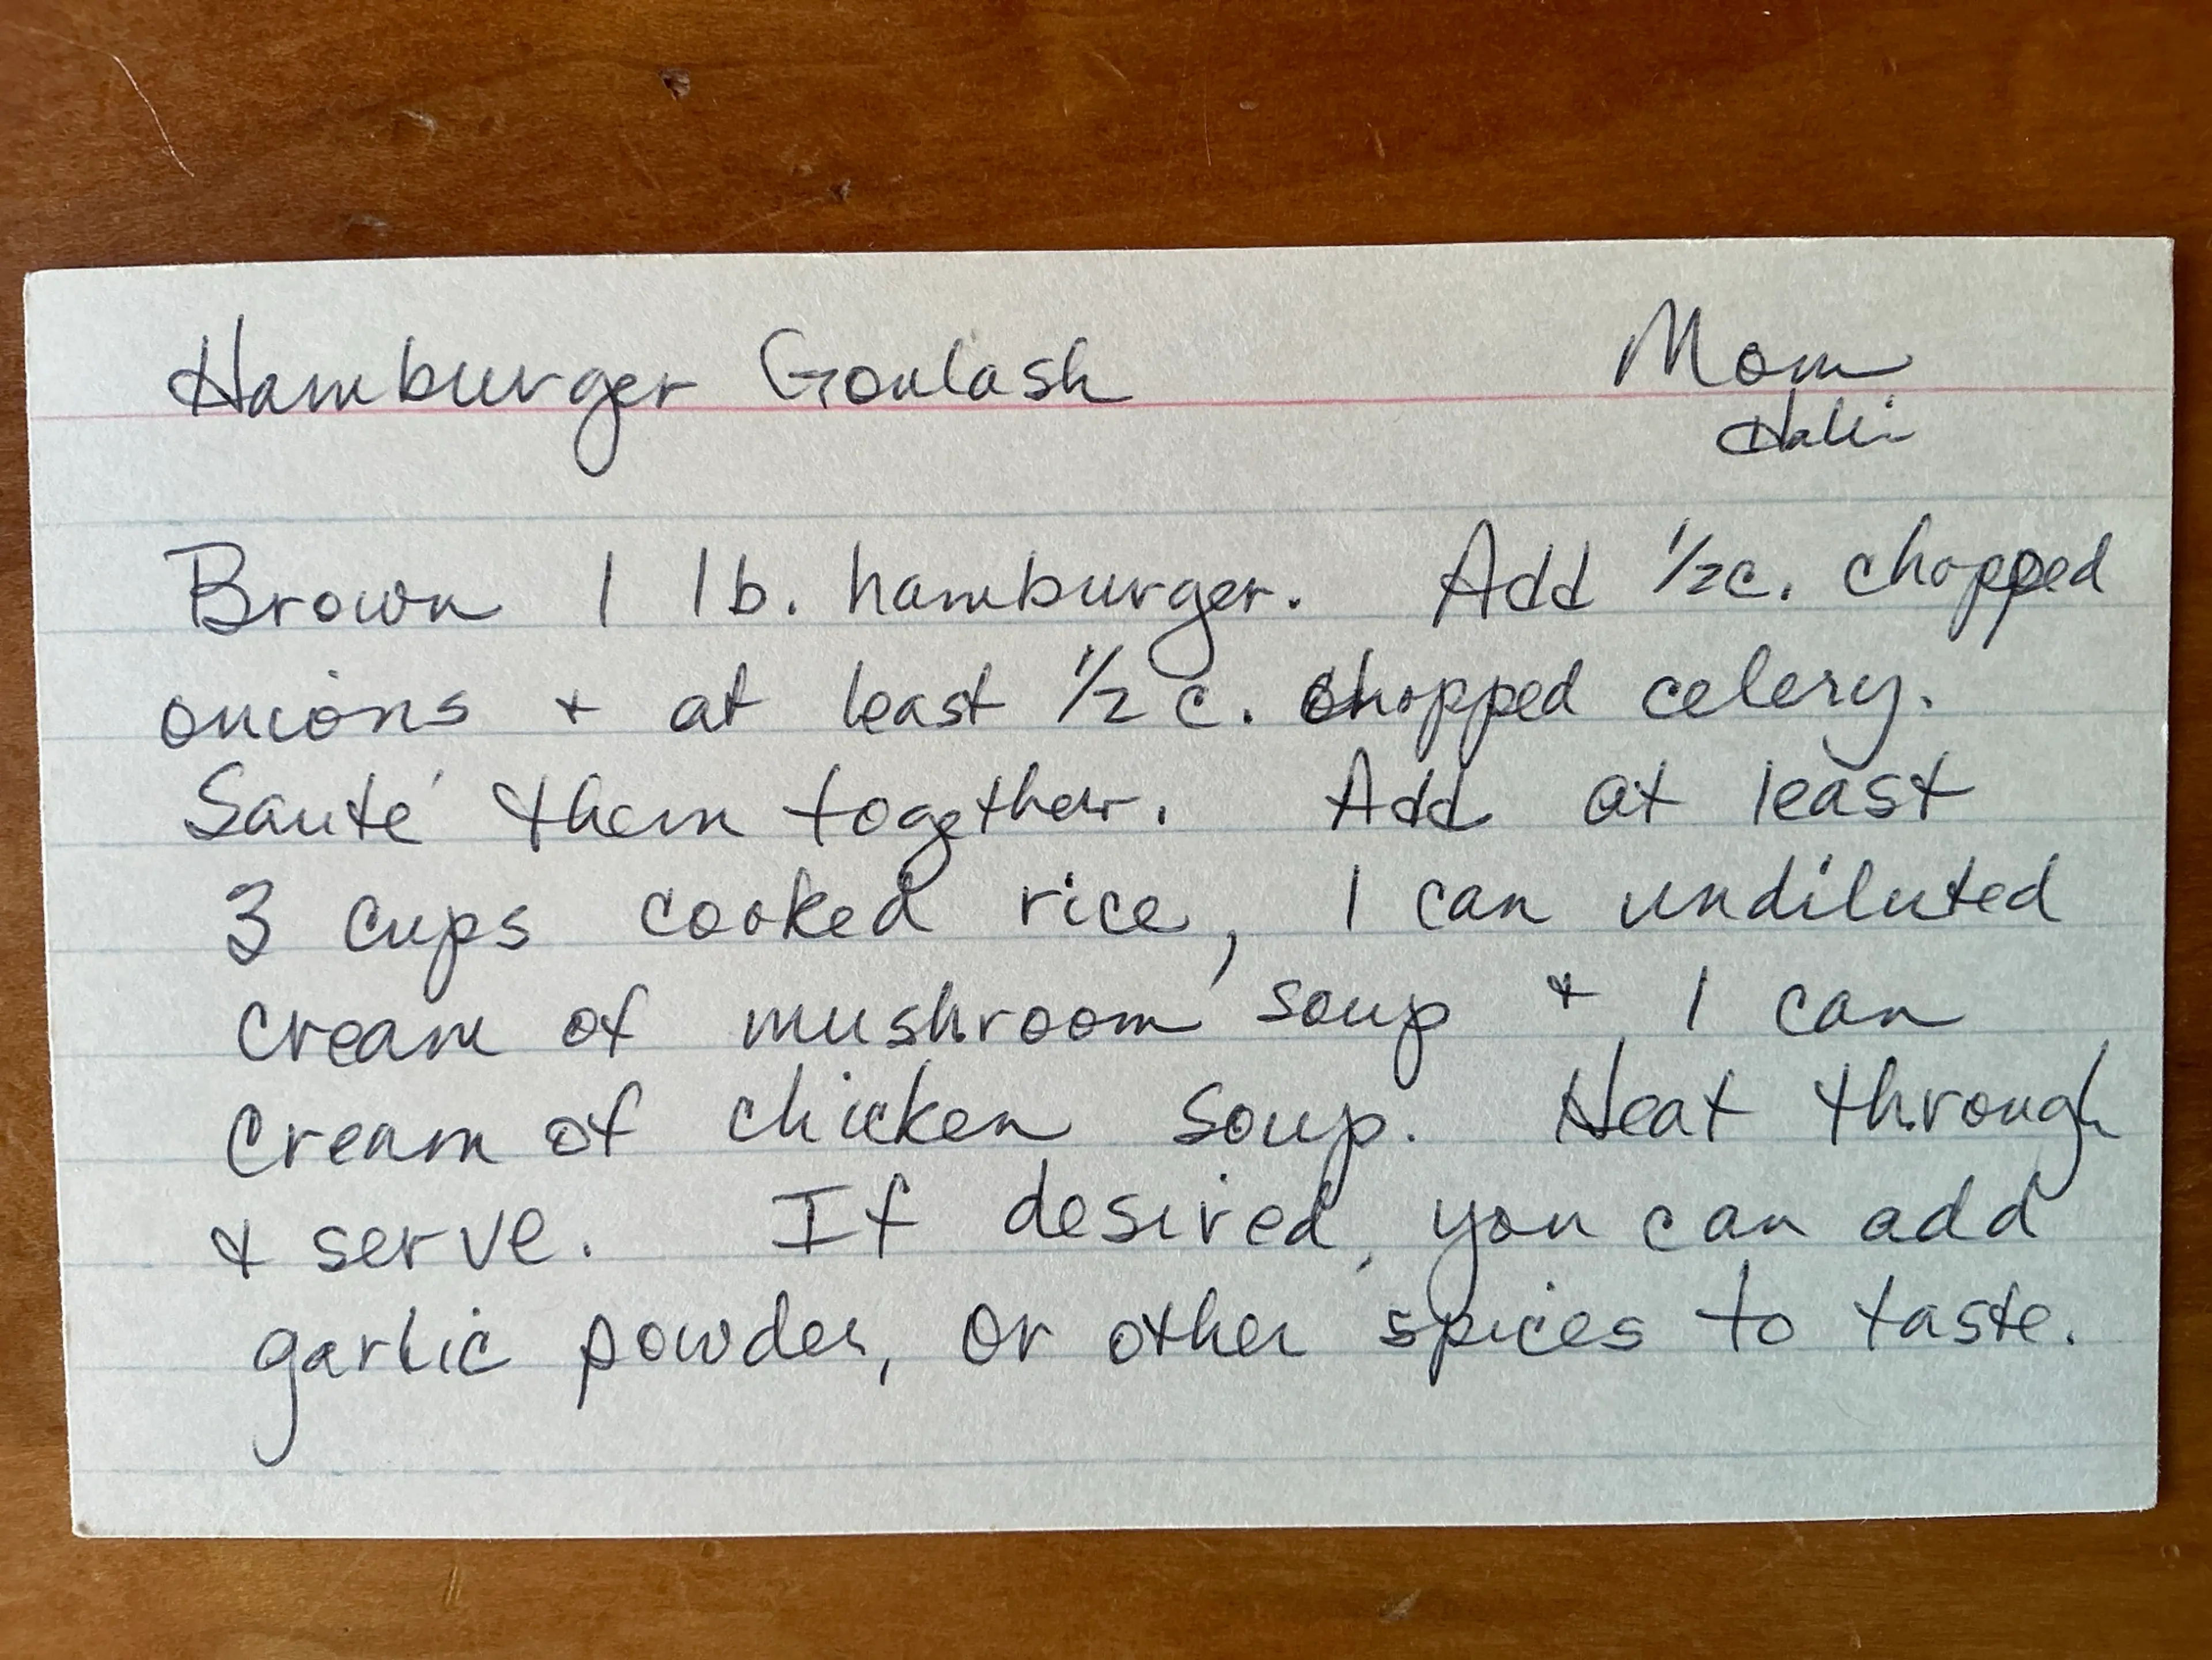 Hamburger Goulash Mom
Brown 1 lb. hamburger. Add 1/2 c. chopped
onions + at least 1/2 c. chopped celery.
Sauté them together. Add at least
3 cups cooked rice, 1 can undiluted
cream of mushroom soup + 1 can
cream of chicken soup. Heat through
+ serve. If desired, you can add
garlic powder, or other spices to taste.